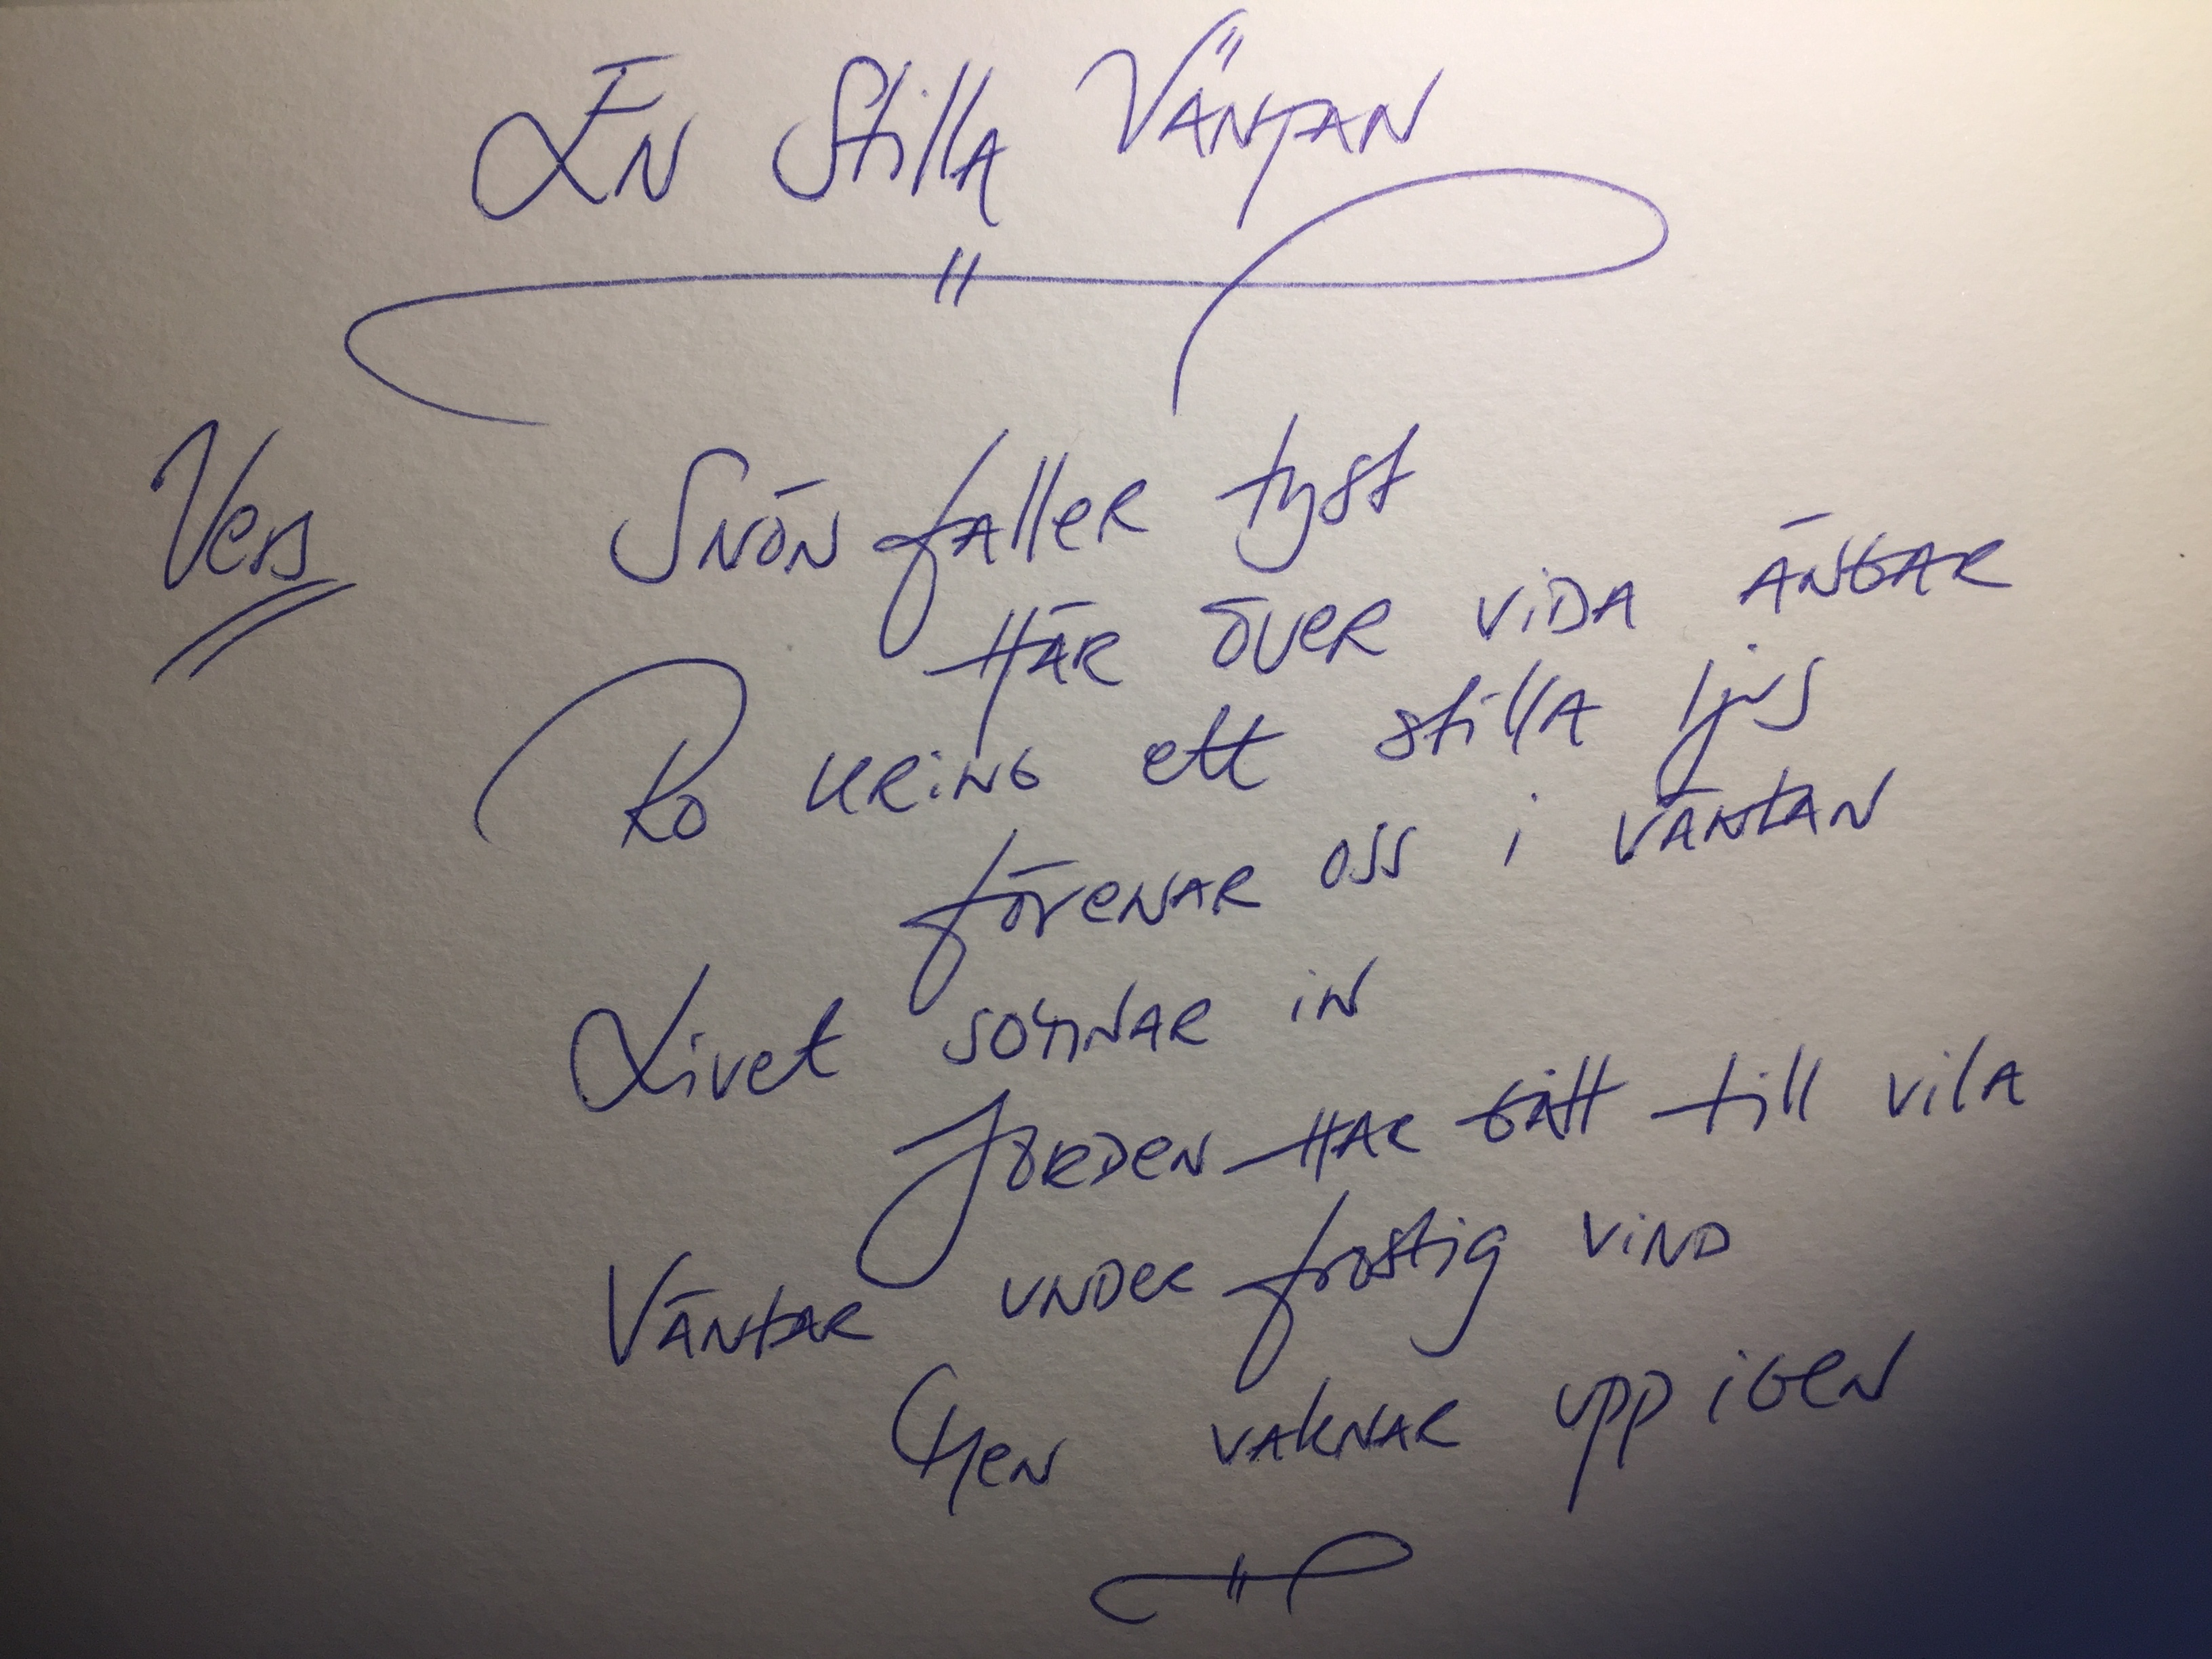 En Stilla Väntan
Vers
Snön faller tyst
Här över vida ängar
Ro kring ett stilla ljus
förenar oss i väntan
Livet somnar in
Jorden har gått till vila
Väntar under frostig vind
Men vaknar upp igen